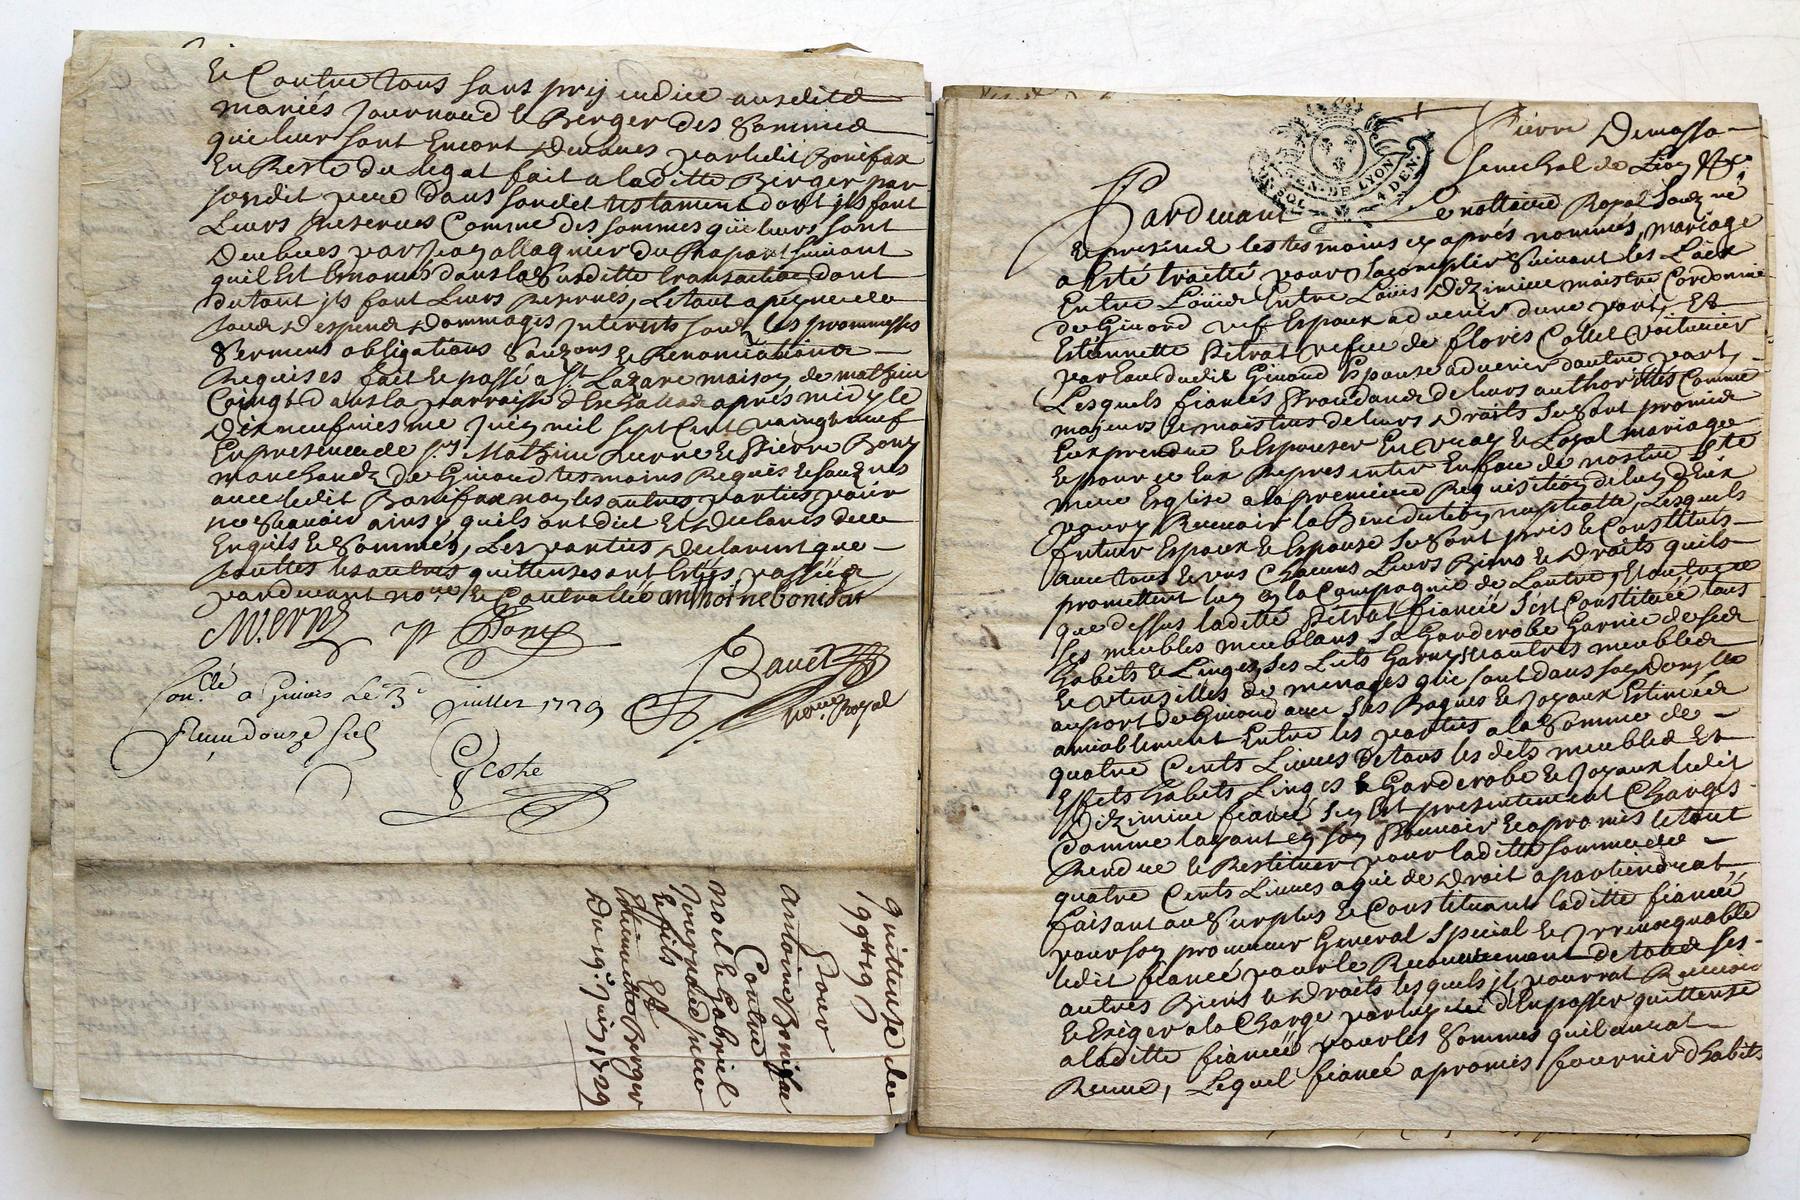 Et Contre tous sans prejudice ausdits
mariés Journoud & Berger des Sommes
qui leur sont Encore Deubues par ledit Bonifax
En Reste du legat fait a laditte Berger par
sondit pere dans sondit testament dont ils font
Leurs Reserves Comme des sommes qui leurs sont
Deubues par Jean allagnier du suivant
quil Est Enoncé dans la Susditte transaction dont
dutant ils font Leurs reserves, Letout a peyne de
tous Despens Dommages Interests soubs les prommesses
Sermens obligations & Renonciations
Requises fait & passé a St. Lazare maison de mathieu
dans la parroisse apres midy le
Dixneufviesme Juin mil sept Cent vaingt neuf
En presence de Srs Mathieu verne & Pierre Bony
marchands de Givord tesmoins Requis & soubsignés
avec ledit Bonifax non les autres parties pour
ne Scavoir ainsy quils ont dict Et Declarés de ce
Enquis & Sommés, Les parties Declarent que
touttes les autres quittenses ont Estés passées
pardevant no.re & Contrallé anthoine bonifat
M. Verne p Bony
Bauet
no.re Royal
Con.llé a Givors Le 3e Juillet 1729
Receu douze sols
quittense de
199# 19s
Pour
Antoine Bonifax
Contre
Noel & Gabriel
Journoud pere
& fils Et
Estiennette Berger
Du 19e Juin 1729
Pierre Demasso
Senechal de Lion &c
GEN. DE LYON 4 DEN.
Pardevant Le nottaire Royal Soubzné
& presens les tesmoins cy apres nommés, mariage
a Esté traitté pour sacomplir Suivant les Loix
Entre Louis Entre Louis Dezimieu maistre Cordonnier
de Givord vef Espoux advenir dune part, Et
Estiennette Pitrat vefve de floris Collet voiturier
par Eau dudit Givord Espouse advenir dautre part,
Lesquels fiancés procedants de leurs authorittés Comme
majeurs & maistres de leurs Droits Se Sont promis
Eux prendre & Espouser En vray & Loyal mariage
& pour ce Eux Representer En face de nostre Ste
mere Esglise a la premiere Requisition de lun Deux
pour y Recevoir la Benediction nuptialle, Lesquels
futurs Espoux & Espouse Se Sont pris & Constitués
avec tous & uns Chacuns Leurs Biens & Droits quils
promettent lun En la Compagnie de Lautre, Et outre ce
que dessus laditte Pitrat fiancée s'est Constituée tous
ses meubles meublans Sa Garderobe Garnie de ses
habits & Linges, Ses Lits Garnis & autres meubles
& utensilles de menages que sont dans son Domicile
au port de Givord avec ses Bagues & Joyaux Estimés
amiablement Entre les parties a la Somme de
quatre Cents Livres De tous les dits meubles Et
Effets habits Linges & Garderobe & Joyaux ledit
Dezimieu fiancé s'en Est presentement Chargés
Comme layant en son Pouvoir & a promis le tout
Rendre & Restituer pour laditte somme de
quatre Cents Livres a qui de Droit apartiendrat
faisant au Surplus & Constituant laditte fiancée
pour son procureur General Special & Irrevocquable
ledit fiancé pour le Recouvrement de tous ses
autres Biens & Droits lesquels il pourrat Recevoir
& Exiger a la Charge par luy d'En passer quittense
a laditte fiancée pour les Sommes quil aurat
Receue, Lequel fiancé a promis fournir d'habits